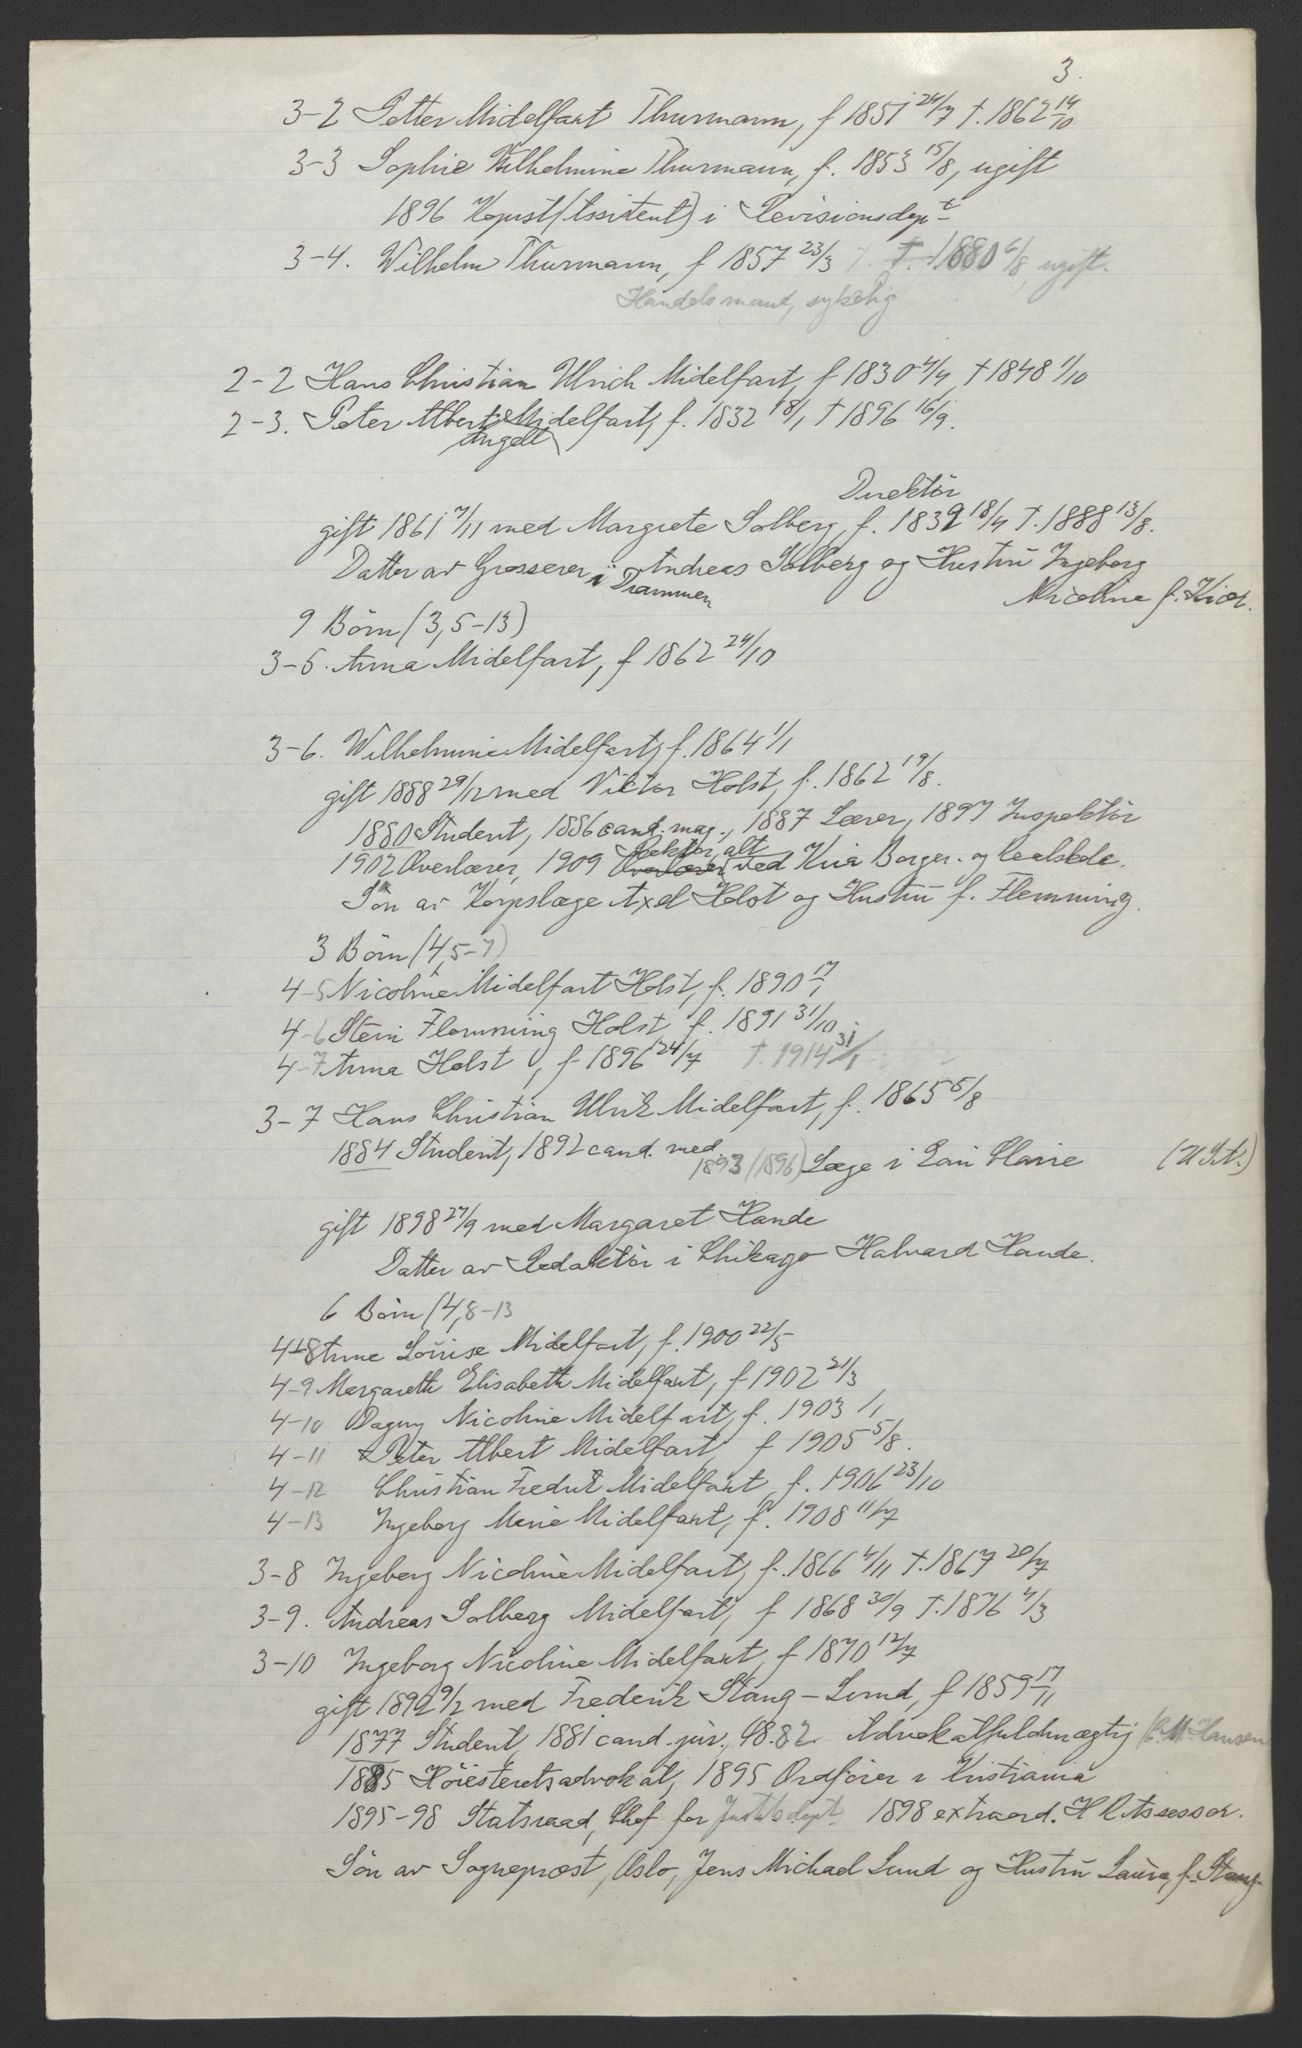 3.
3-2 Petter Midelfart Thurmann, f 1851 24/7 †. 1862 14/10
3-3 Sophie Wilhelmine Thurmann, f. 1853 15/8, ugift
1896 Kopist (Assistent) i Revisionsdept
3-4. Wilhelm Thurmann, f 1857 23/3 †. 1880 6/8, ugift.
Handelsmand, sykelig
2-2 Hans Christian Ulrich Midelfart, f 1830 4/4 † 1848 1/10
2-3. Peter Albert Midelfart, f. 1832 18/1 † 1896 16/9.
Angell
Direktör
gift 1861 7/11 med Margrete Solberg, f. 1839 18/4 †. 1888 13/8.
Datter av Grosserer i Drammen Andreas Solberg og Hustru Ingeborg
Nicoline f. Kiær.
9 Börn (3,5-13)
3-5. Anna Midelfart, f 1862 24/10
3-6. Wilhelmine Midelfart, f. 1864 1/1
gift 1888 29/12 med Viktor Holst, f. 1862 19/8.
1880 Student, 1886 cand. mag., 1887 Lærer, 1897 Inspektör
1902 Overlærer, 1909 Overlærer Rektor, alt ved Kria Borger. og Realskole.
Sön av Korpslæge Axel Holst og Hustru f. Flemming.
3 Börn (4,5-7)
4-5 Nicoline Midelfart Holst, f. 1890 17/1
4-6 Stein Flemming Holst f. 1891 31/10.
4-7 Anna Holst, f 1896 24/7 †. 1914 31/1
3-7 Hans Christian Ulrik Midelfart, f. 1865 5/8
1884 Student, 1892 cand. med. 1893 (1896) Læge i Eau Claire (U.S.A.)
gift 1898 27/9 med Margaret Hande
Datter av Redaktör i Chikago Halvard Hande.
6 Börn (4,8-13
4-8 Anne Louise Midelfart, f. 1900 22/5
4-9 Margareth Elisabeth Midelfart, f 1902 21/3
4-10 Dagny Nicoline Midelfart, f. 1903 1/1
4-11 Peter Albert Midelfart, f 1905 5/8.
4-12 Christian Fredrik Midelfart, f. 1906 23/10
4-13 Ingeborg Marie Midelfart, f. 1908 11/7
3-8 Ingeborg Nicoline Midelfart, f. 1866 4/11 †. 1867 20/7
3-9. Andreas Solberg Midelfart, f 1868 30/9 †. 1876 4/3
3-10 Ingeborg Nicoline Midelfart, f 1870 12/7
gift 1892 9/2 med Frederik Stang-Lund, f 1859 17/11
1877 Student, 1881 cand. jur., 98.82. Advokatfuldmægtig Hansen
1885 Höiesteretsadvokat, 1895 Ordförer i Kristiania
1895-98 Statsraad, Chef for Justitsdept. 1898 extraord. H R Assessor.
Sön av Sogneprest, Oslo, Jens Michael Lund og Hustru Laura, f. Stang.